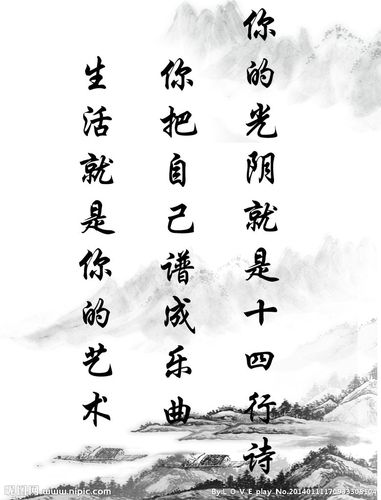 生活就是你的艺术
你把自己谱成乐曲
你的光阴就是十四行诗
昵图网 www.nipic.com
By:L O V E play No.20140111170933506104